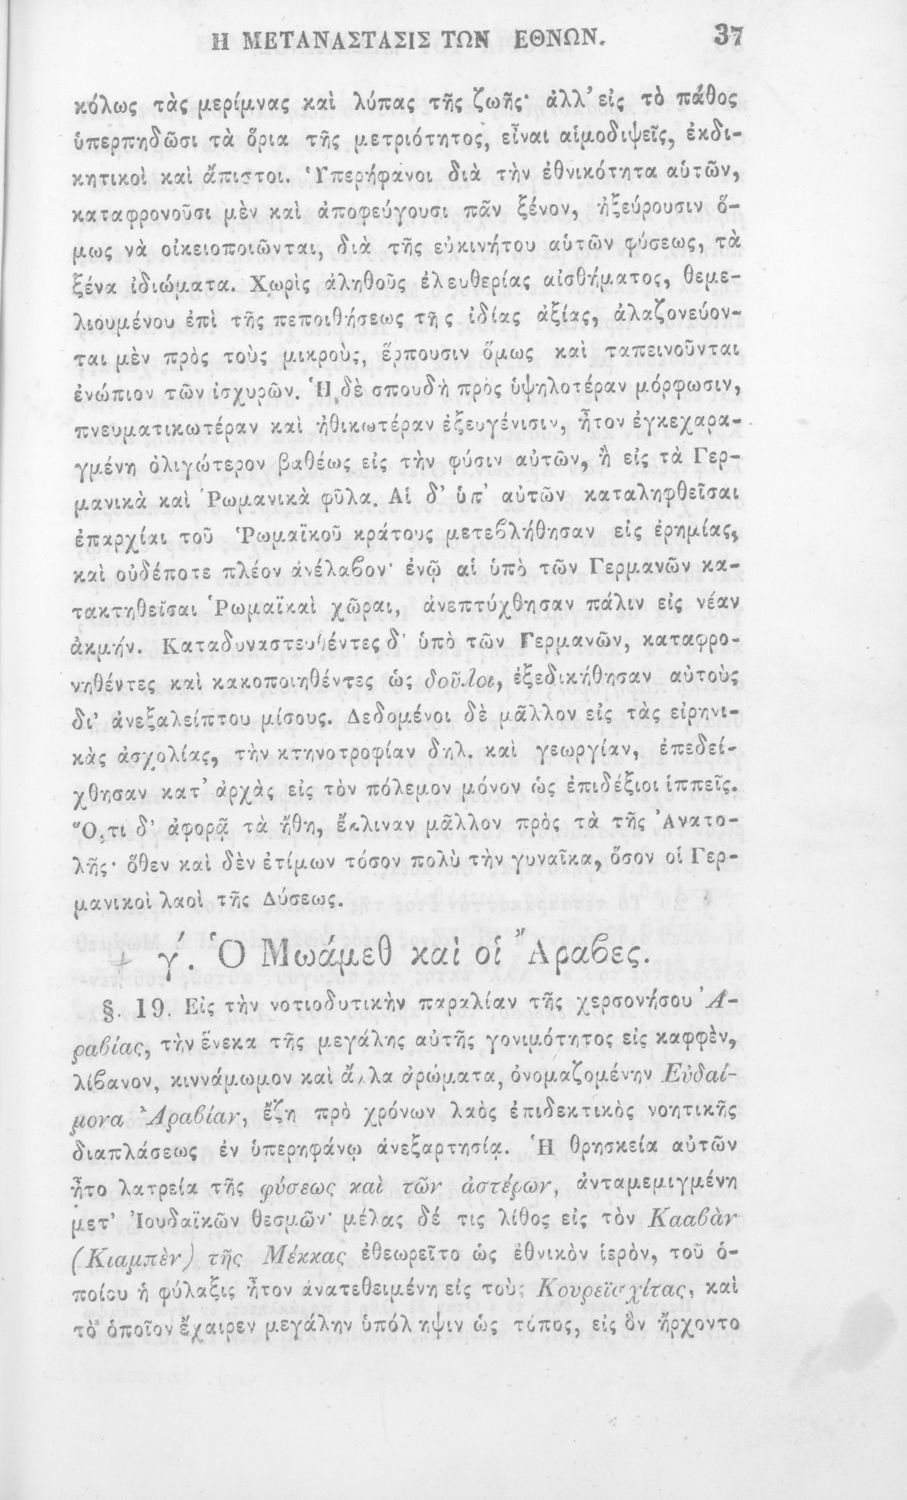 Η ΜΕΤΑΝΑΣΤΑΣΙΣ ΤΩΝ ΕΘΝΩΝ. 37
κόλως τὰς μερίμνας καὶ λύπας τῆς ζωῆς· ἀλλ' εἰς τὸ πάθος
ὑπερπηδῶσι τὰ ὅρια τῆς μετριότητος, εἶναι αἱμοδιψεῖς, ἐκδι-
κητικοὶ καὶ ἄπιστοι. Ὑπερήφανοι διὰ τὴν ἐθνικότητα αὑτῶν,
καταφρονοῦσι μὲν καὶ ἀποφεύγουσι πᾶν ξένον, ἠξεύρουσιν ὅ-
μως νὰ οἰκειοποιῶνται, διὰ τῆς εὐκινήτου αὑτῶν φύσεως, τὰ
ξένα ἰδιώματα. Χωρὶς ἀληθοῦς ἐλευθερίας αἰσθήματος, θεμε-
λιουμένου ἐπὶ τῆς πεποιθήσεως τῆς ἰδίας ἀξίας, ἀλαζονεύον-
ται μὲν πρὸς τοὺς μικροὺς, ἕρπουσιν ὅμως καὶ ταπεινοῦνται
ἐνώπιον τῶν ἰσχυρῶν. Ἡ δὲ σπουδὴ πρὸς ὑψηλοτέραν μόρφωσιν,
πνευματικωτέραν καὶ ἠθικωτέραν ἐξευγένισιν, ἦτον ἐγκεχαρα-
γμένη ὀλιγώτερον βαθέως εἰς τὴν φύσιν αὐτῶν, ἢ εἰς τὰ Γερ-
μανικὰ καὶ Ῥωμανικὰ φῦλα. Αἱ δ' ὑπ' αὐτῶν καταληφθεῖσαι
ἐπαρχίαι τοῦ Ῥωμαϊκοῦ κράτους μετεβλήθησαν εἰς ἐρημίας,
καὶ οὐδέποτε πλέον ἀνέλαβον· ἐνῷ αἱ ὑπὸ τῶν Γερμανῶν κα-
τακτηθεῖσαι Ῥωμαϊκαὶ χῶραι, ἀνεπτύχθησαν πάλιν εἰς νέαν
ἀκμήν. Καταδυναστευθέντες δ' ὑπὸ τῶν Γερμανῶν, καταφρο-
νηθέντες καὶ κακοποιηθέντες ὡς δοῦλοι, ἐξεδικήθησαν αὐτοὺς
δι' ἀνεξαλείπτου μίσους. Δεδομένοι δὲ μᾶλλον εἰς τὰς εἰρηνι-
κὰς ἀσχολίας, τὴν κτηνοτροφίαν δηλ. καὶ γεωργίαν, ἐπεδεί-
χθησαν κατ' ἀρχὰς εἰς τὸν πόλεμον μόνον ὡς ἐπιδέξιοι ἱππεῖς.
Ὅ,τι δ' ἀφορᾷ τὰ ἤθη, ἔκλιναν μᾶλλον πρὸς τὰ τῆς Ἀνατο-
λῆς· ὅθεν καὶ δὲν ἐτίμων τόσον πολὺ τὴν γυναῖκα, ὅσον οἱ Γερ-
μανικοὶ λαοὶ τῆς Δύσεως.
γ΄. Ὁ Μωάμεθ καὶ οἱ Ἄραβες.
§. 19. Εἰς τὴν νοτιοδυτικὴν παραλίαν τῆς χερσονήσου Ἀ-
ραβίας, τὴν ἕνεκα τῆς μεγάλης αὐτῆς γονιμότητος εἰς καφφὲν,
λίβανον, κιννάμωμον καὶ ἄλλα ἀρώματα, ὀνομαζομένην Εὐδαί-
μονα Ἀραβίαν, ἔζη πρὸ χρόνων λαὸς ἐπιδεκτικὸς νοητικῆς
διαπλάσεως ἐν ὑπερηφάνῳ ἀνεξαρτησίᾳ. Ἡ θρησκεία αὐτῶν
ἦτο λατρεία τῆς φύσεως καὶ τῶν ἀστέρων, ἀνταμεμιγμένη
μετ' Ἰουδαϊκῶν θεσμῶν· μέλας δέ τις λίθος εἰς τὸν Κααβὰν
(Κιαμπὲν) τῆς Μέκκας ἐθεωρεῖτο ὡς ἐθνικὸν ἱερὸν, τοῦ ὁ-
ποίου ἡ φύλαξις ἦτον ἀνατεθειμένη εἰς τοὺς Κουρεϊσχίτας, καὶ
τὸ ὁποῖον ἔχαιρεν μεγάλην ὑπόληψιν ὡς τόπος, εἰς ὃν ἤρχοντο